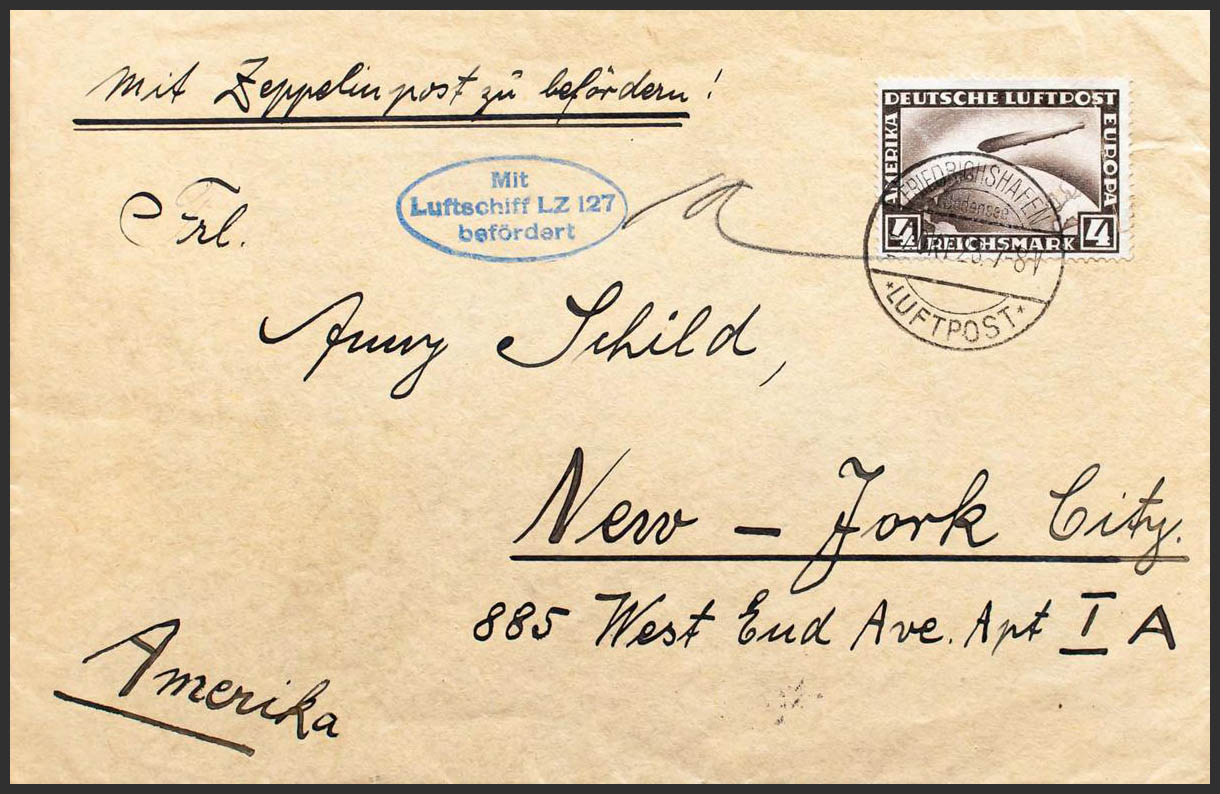 Mit Zeppelinpost zu befördern!
DEUTSCHE LUFTPOST
AMERIKA
EUROPA
4 REICHSMARK 4
FRIEDRICHSHAFEN
Bodensee
7-8V
*LUFTPOST*
Mit
Luftschiff LZ 127
befördert
Frl.
Anny Schild,
New-York City.
885 West End Ave. Apt I A
Amerika